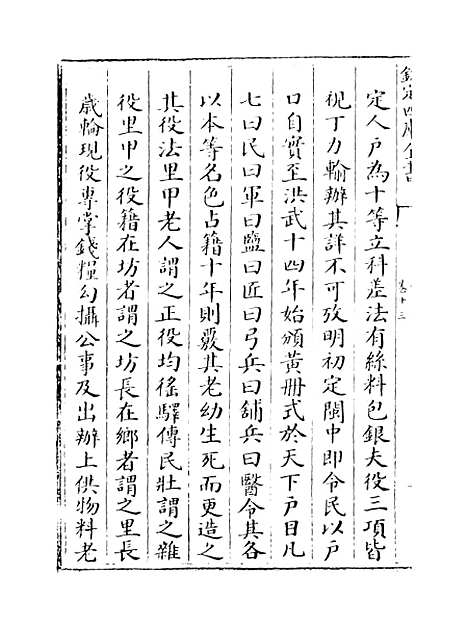 欽定四庫全書
卷十三
定人戶為十等立科差法有絲料包銀夫役三項皆
視丁力輸辦其詳不可攷明初定閩中即令民以戶
口自實至洪武十四年始頒黃冊式於天下戶目凡
七曰民曰軍曰鹽曰匠曰弓兵曰舖兵曰醫令其各
以本等名色占籍十年則覈其老幼生死而更造之
其役法里甲老人謂之正役均徭驛傳民壯謂之雜
役里甲之役籍在坊者謂之坊長在鄉者謂之里長
歲輪現役專掌錢糧勾攝公事及出辦上供物料老